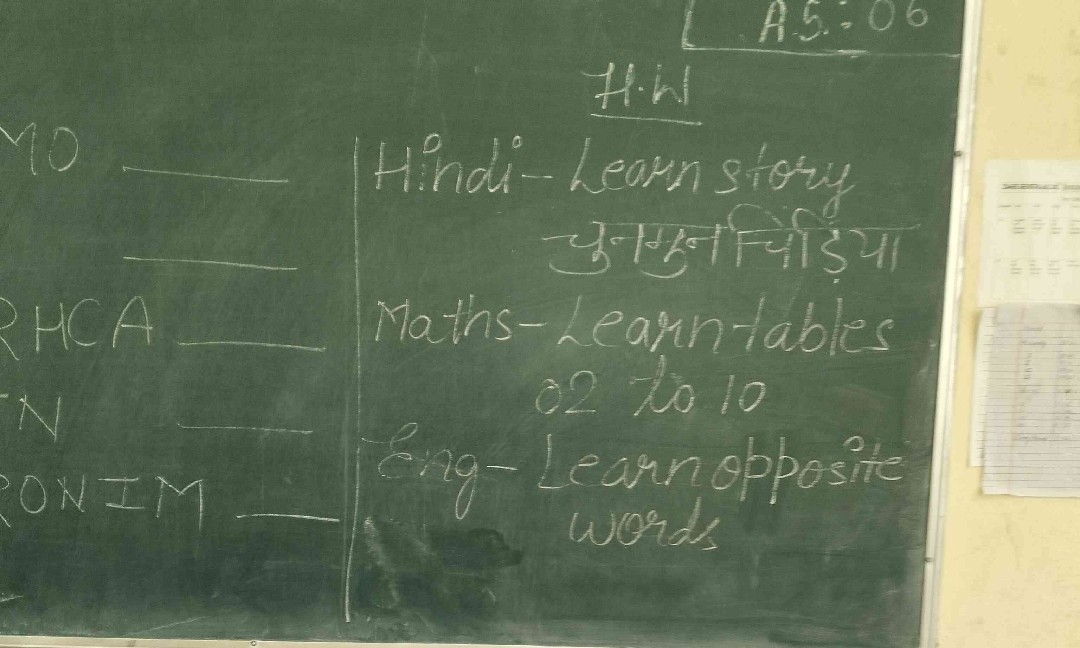 A.S.: 06
H.W
MO
RHCA
N
RONIM
Hindi - Learn story
चुनमुन चिड़िया
Maths - Learn tables
02 to 10
Eng - Learn opposite
words